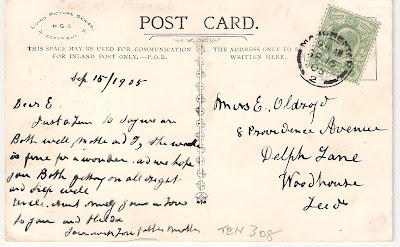 LIVING PICTURE SERIES
H.G.L.
COPYRIGHT
POST CARD.
THIS SPACE MAY BE USED FOR COMMUNICATION
FOR INLAND POST ONLY.—P.O.R.
THE ADDRESS ONLY TO BE
WRITTEN HERE.
Sep 15/1905
Dear E.
Just a line to say we are
Both well, the weather
is fine for a wonder. and we hope
you Both getting on all right
and keep well
Uncle Aunt
to you and Hilda
Father Mother
TEH 308
Miss E. Oldroyd
8 Providence Avenue
Delph Lane
Woodhouse
Leeds
2